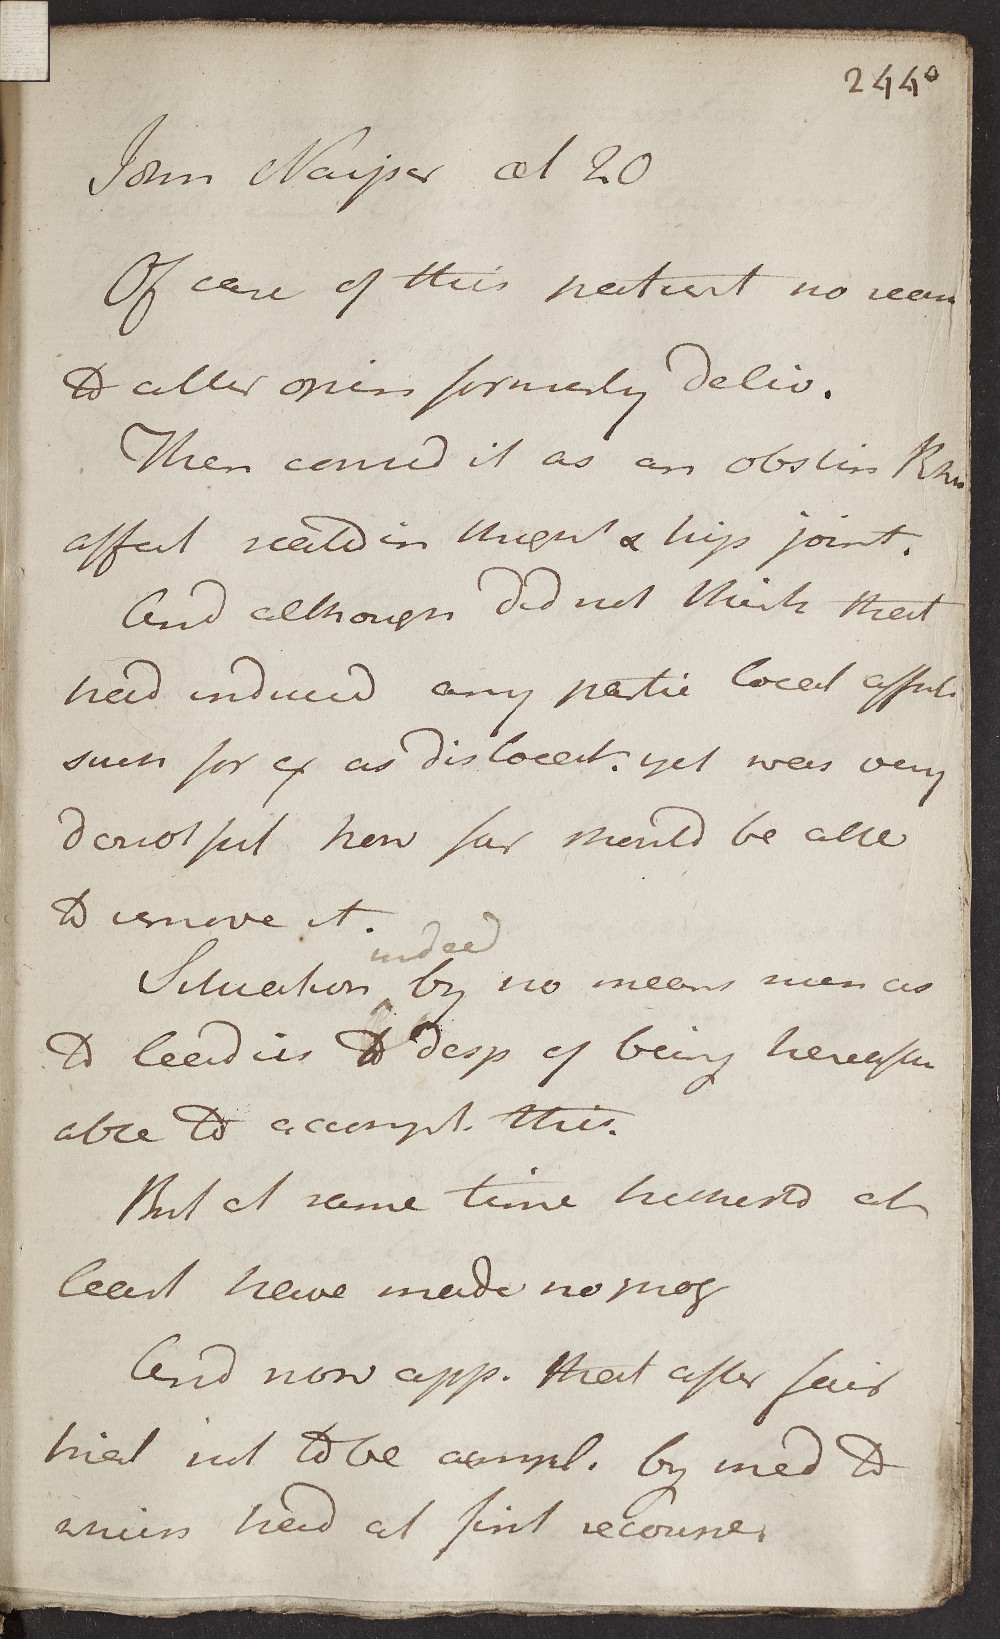 244
John Naiper æt 20
Of case of this patient no reason
to alter opin formerly deliv.
Then consid it as an obstin Rheu
affect seated in thigh & hip joint.
And although did not think that
had induced any partic local affect
such for ex as dislocat. yet was very
doubtful how far should be able
to remove it.
indeed
Situation by no means such as
to lead us to desp of being hereafter
able to accompl. this.
But at same time hitherto at
least have made no prog
And now app. that after fair
trial not to be accompl. by med to
which had at first recourse.